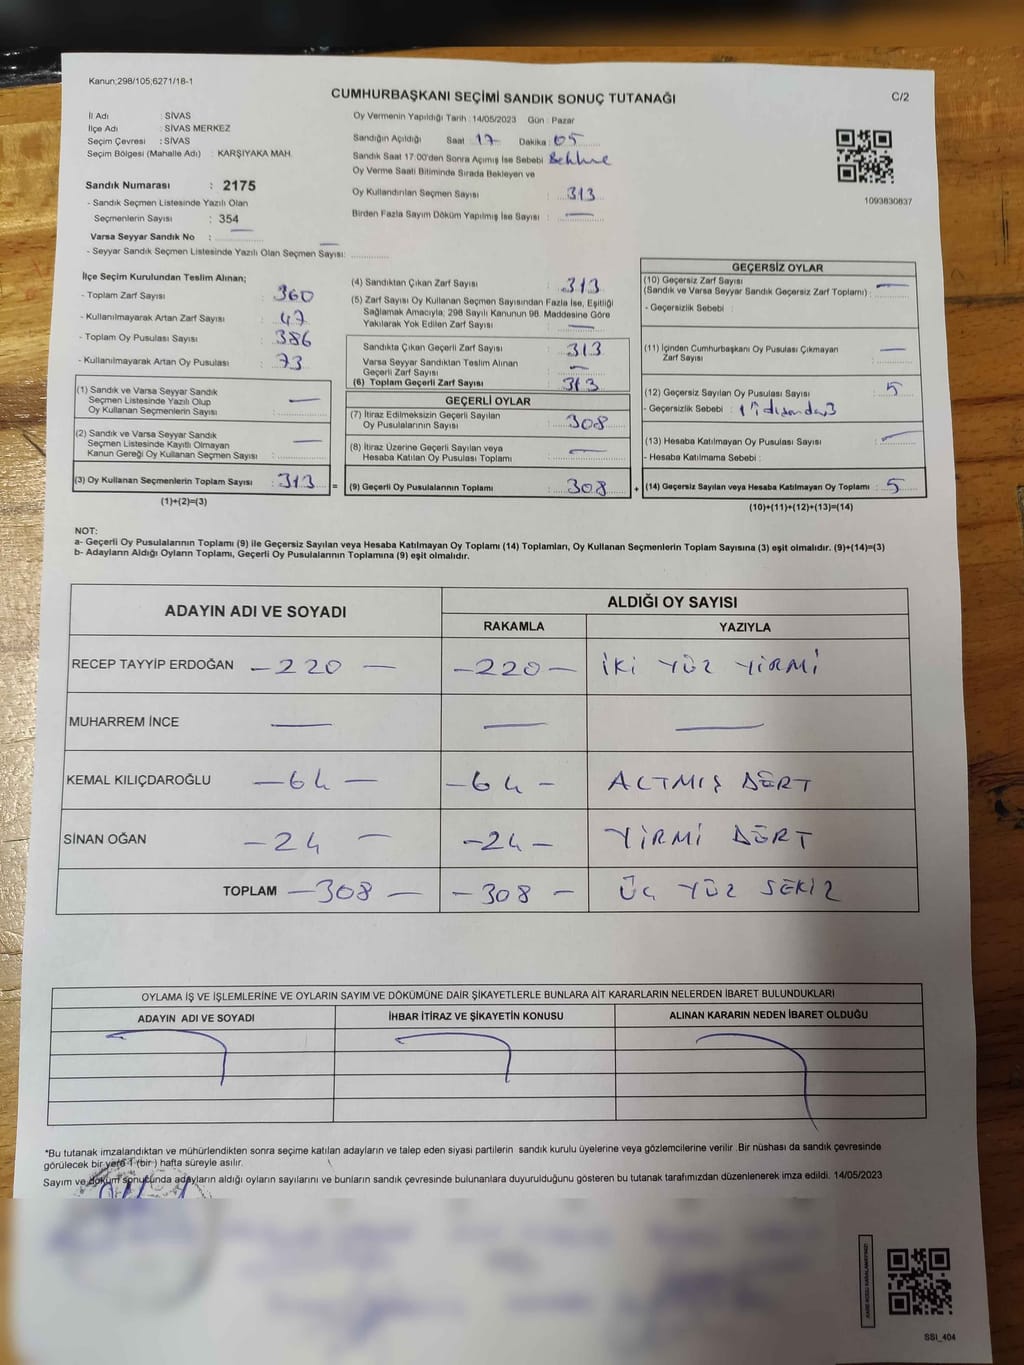 Kanun;298/105;6271/18-1
CUMHURBAŞKANI SEÇİMİ SANDIK SONUÇ TUTANAĞI
C/2
İl Adı : SİVAS
İlçe Adı : SİVAS MERKEZ
Seçim Çevresi : SİVAS
Seçim Bölgesi (Mahalle Adı) : KARŞIYAKA MAH.
Sandık Numarası : 2175
- Sandık Seçmen Listesinde Yazılı Olan
Seçmenlerin Sayısı : 354
Varsa Seyyar Sandık No : —
- Seyyar Sandık Seçmen Listesinde Yazılı Olan Seçmen Sayısı: —
Oy Vermenin Yapıldığı Tarih : 14/05/2023 Gün : Pazar
Sandığın Açıldığı Saat : 17 Dakika : 05
Sandık Saat 17:00'den Sonra Açımış İse Sebebi
Oy Verme Saati Bitiminde Sırada Bekleyen ve
Oy Kullandırılan Seçmen Sayısı : 313
Birden Fazla Sayım Döküm Yapılmış İse Sayısı : —
1093830837
İlçe Seçim Kurulundan Teslim Alınan;
- Toplam Zarf Sayısı : 360
- Kullanılmayarak Artan Zarf Sayısı : 47
- Toplam Oy Pusulası Sayısı : 386
- Kullanılmayarak Artan Oy Pusulası : 73
(1) Sandık ve Varsa Seyyar Sandık
Seçmen Listesinde Yazılı Olup
Oy Kullanan Seçmenlerin Sayısı : —
(2) Sandık ve Varsa Seyyar Sandık
Seçmen Listesinde Kayıtlı Olmayan
Kanun Gereği Oy Kullanan Seçmen Sayısı : —
(3) Oy Kullanan Seçmenlerin Toplam Sayısı : 313 =
(1)+(2)=(3)
(4) Sandıktan Çıkan Zarf Sayısı : 313
(5) Zarf Sayısı Oy Kullanan Seçmen Sayısından Fazla İse, Eşitliği
Sağlamak Amacıyla; 298 Sayılı Kanunun 98. Maddesine Göre
Yakılarak Yok Edilen Zarf Sayısı : —
Sandıkta Çıkan Geçerli Zarf Sayısı : 313
Varsa Seyyar Sandıktan Teslim Alınan
Geçerli Zarf Sayısı : —
(6) Toplam Geçerli Zarf Sayısı : 313
GEÇERLİ OYLAR
(7) İtiraz Edilmeksizin Geçerli Sayılan
Oy Pusulalarının Sayısı : 308
(8) İtiraz Üzerine Geçerli Sayılan veya
Hesaba Katılan Oy Pusulası Toplamı : —
(9) Geçerli Oy Pusulalarının Toplamı : 308 +
GEÇERSİZ OYLAR
(10) Geçersiz Zarf Sayısı
(Sandık ve Varsa Seyyar Sandık Geçersiz Zarf Toplamı) : —
- Geçersizlik Sebebi :
(11) İçinden Cumhurbaşkanı Oy Pusulası Çıkmayan
Zarf Sayısı : —
(12) Geçersiz Sayılan Oy Pusulası Sayısı : 5
- Geçersizlik Sebebi :
(13) Hesaba Katılmayan Oy Pusulası Sayısı : —
- Hesaba Katılmama Sebebi :
(14) Geçersiz Sayılan veya Hesaba Katılmayan Oy Toplamı : 5
(10)+(11)+(12)+(13)=(14)
NOT:
a- Geçerli Oy Pusulalarının Toplamı (9) ile Geçersiz Sayılan veya Hesaba Katılmayan Oy Toplamı (14) Toplamları, Oy Kullanan Seçmenlerin Toplam Sayısına (3) eşit olmalıdır. (9)+(14)=(3)
b- Adayların Aldığı Oyların Toplamı, Geçerli Oy Pusulalarının Toplamına (9) eşit olmalıdır.
ADAYIN ADI VE SOYADI
ALDIĞI OY SAYISI
RAKAMLA YAZIYLA
RECEP TAYYİP ERDOĞAN — 220 — — 220 — İKİ YÜZ YİRMİ
MUHARREM İNCE — — —
KEMAL KILIÇDAROĞLU — 64 — — 64 — ALTMIŞ DÖRT
SİNAN OĞAN — 24 — — 24 — YİRMİ DÖRT
TOPLAM — 308 — — 308 — ÜÇ YÜZ SEKİZ
OYLAMA İŞ VE İŞLEMLERİNE VE OYLARIN SAYIM VE DÖKÜMÜNE DAİR ŞİKAYETLERLE BUNLARA AİT KARARLARIN NELERDEN İBARET BULUNDUKLARI
ADAYIN ADI VE SOYADI İHBAR İTİRAZ VE ŞİKAYETİN KONUSU ALINAN KARARIN NEDEN İBARET OLDUĞU
*Bu tutanak imzalandıktan ve mühürlendikten sonra seçime katılan adayların ve talep eden siyasi partilerin sandık kurulu üyelerine veya gözlemcilerine verilir. Bir nüshası da sandık çevresinde
görülecek bir yere 1 (bir) hafta süreyle asılır.
Sayım ve döküm sonucunda adayların aldığı oyların sayılarını ve bunların sandık çevresinde bulunanlara duyurulduğunu gösteren bu tutanak tarafımızdan düzenlenerek imza edildi. 14/05/2023
SSI_404